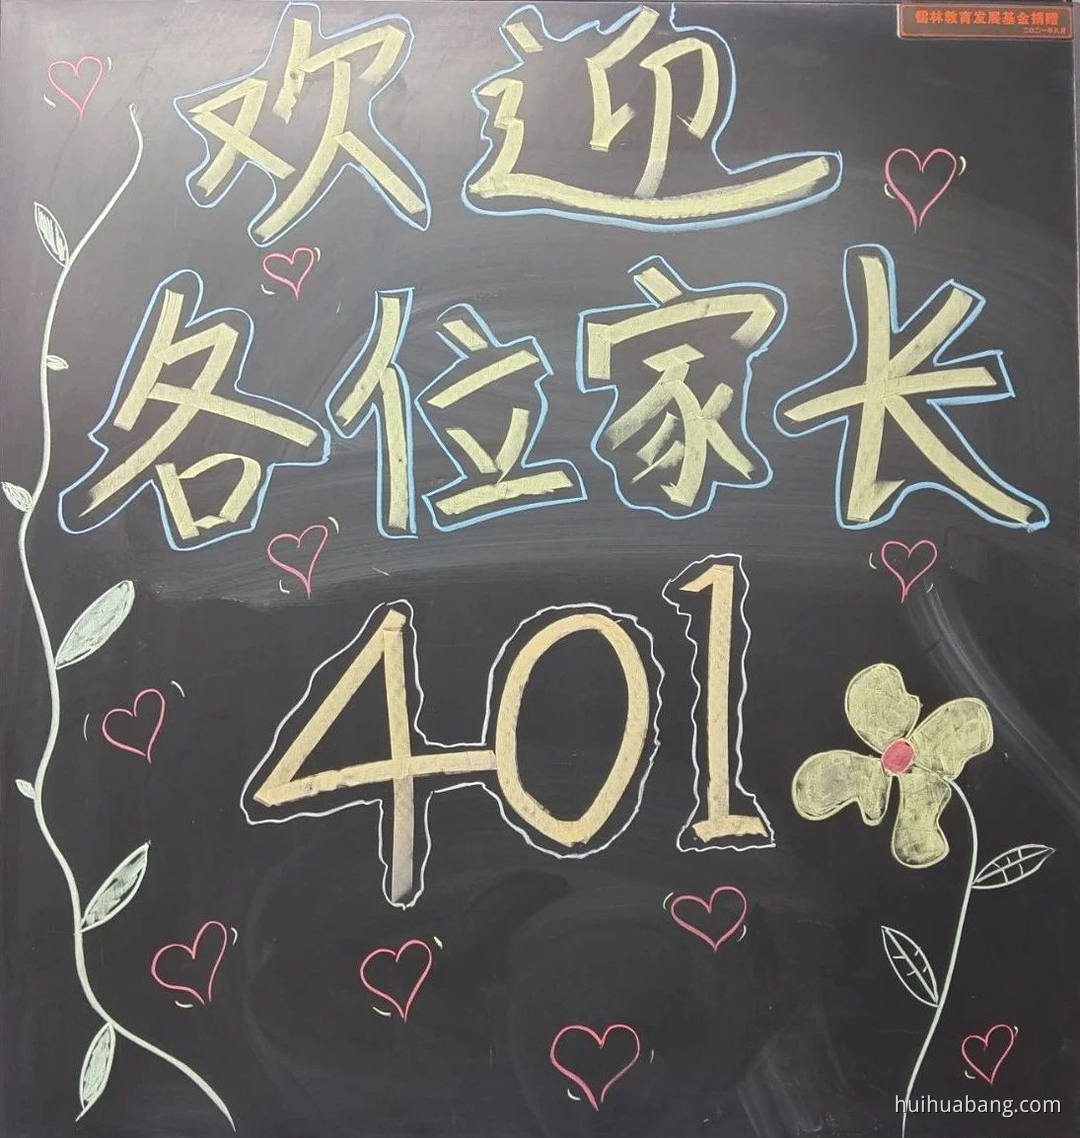 儒林教育发展基金捐赠
二〇二一年八月
欢迎
各位家长
401
huihuabang.com